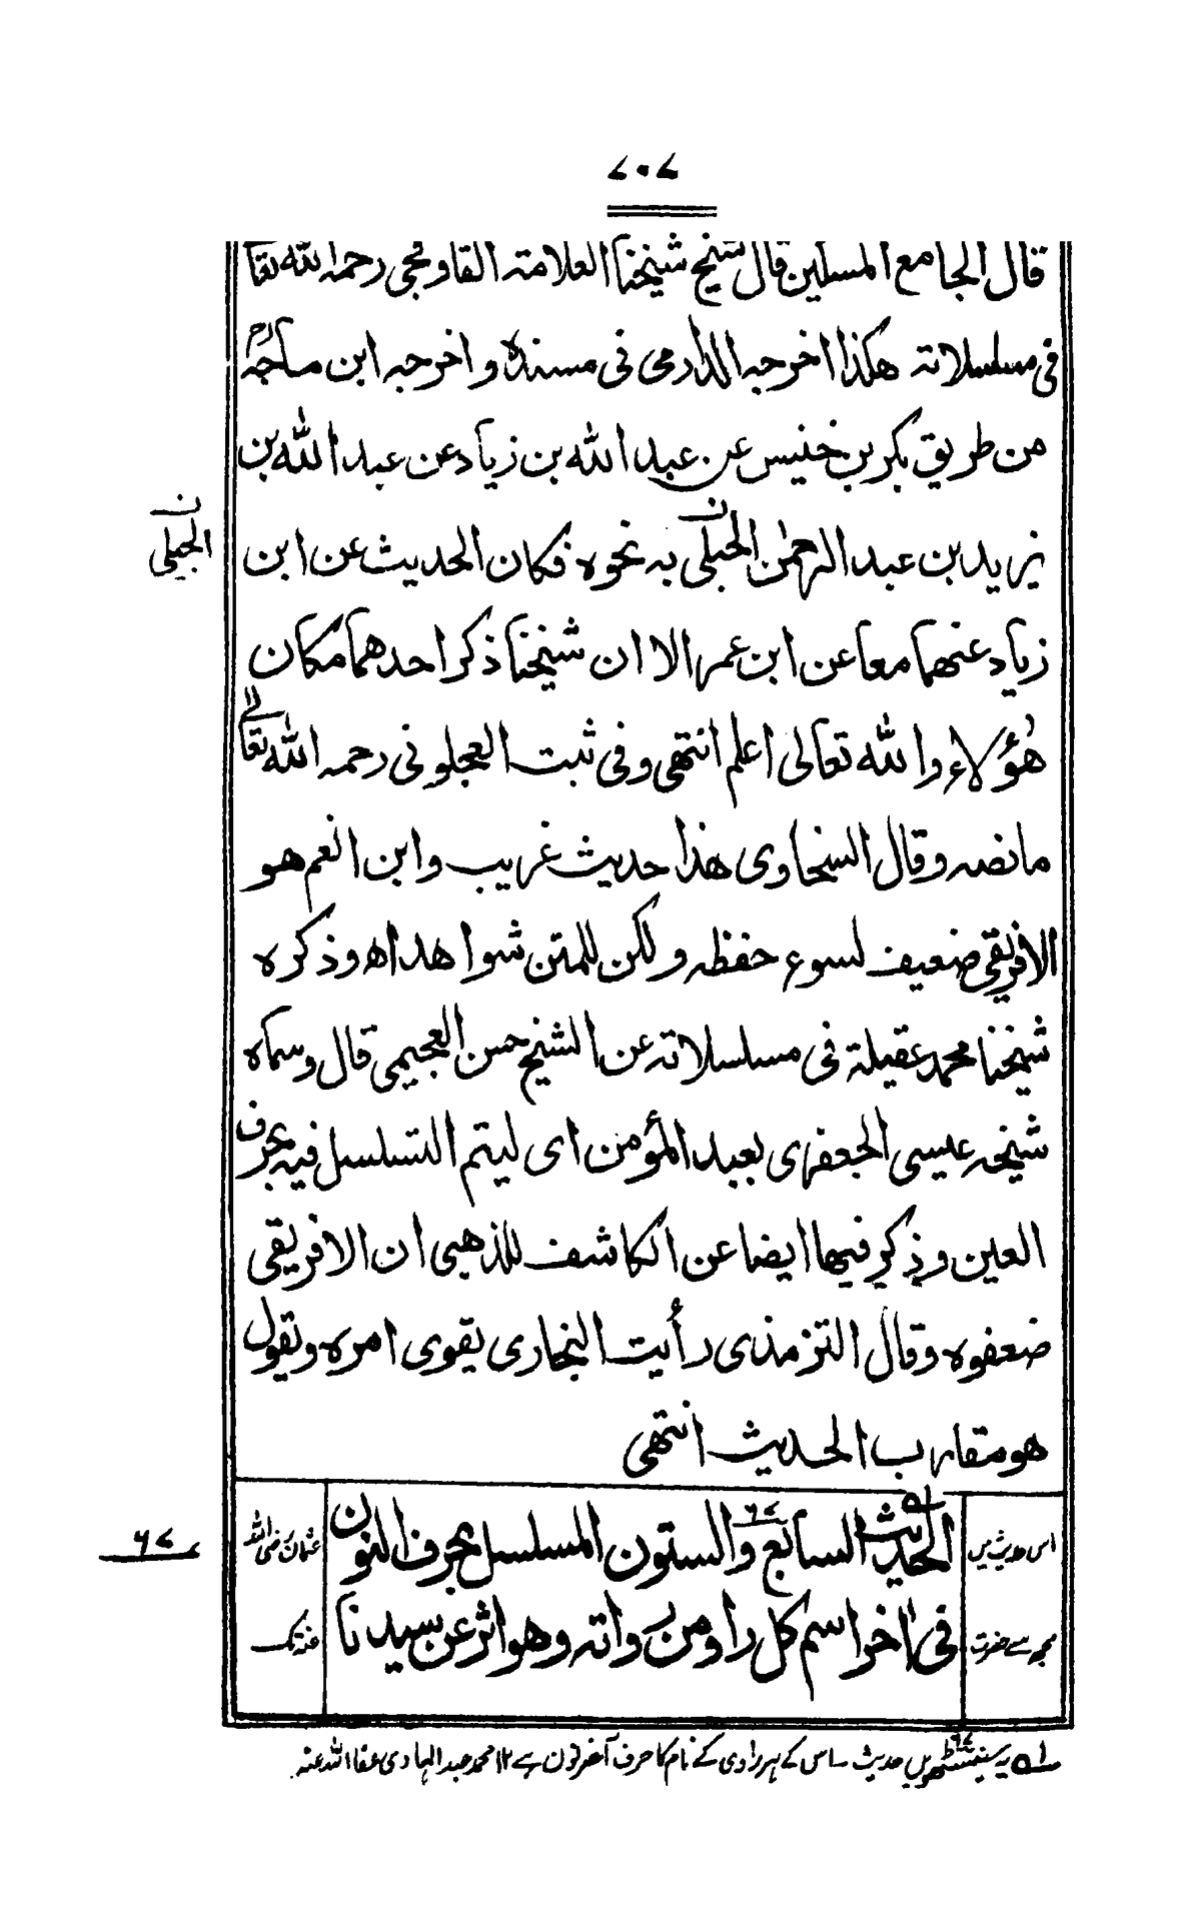 ۷۰۷
قال الجامع المسلين قال شيخ شيخنا العلامته القاوقجى رحمه الله تعا
فى مسلسلاته هكذا اخرجه الدارمى فى مسنده واخرجه ابن ماجه
من طريق بكر بن خنيس عن عبد الله بن زياد عن عبد الله بن
يزيد بن عبد الرحمٰن الحبلى به نحوه فكان الحديث عن ابن
الجيلى
زياد عنهما معا عن ابن عمر الا ان شيخنا ذكر احدهما مكان
هٰؤلاء والله تعالى اعلم انتهى وفى ثبت العجلونى رحمه الله تعالےٰ
مانصه وقال السخاوى هذا حديث غريب وابن انعم هو
الافريقى ضعيف لسوء حفظه ولكن للمتن شواهد اه وذكره
شيخنا محمد عقيلة فى مسلسلاته عن الشيخ حسن العجيمى قال وسماه
شيخه عيسى الجعفرى بعبد المؤمن اى ليتم التسلسل فيه بحرف
العين وذكر فيها ايضا عن الكاشف للذهبى ان الافريقى
ضعفوه وقال الترمذى رأيت البخارى يقوى امره ويقول
هو مقارب الحديث انتهى
الحديث السابع والستون المسلسل بحرف النون
فى اٰخر اسم كل راو من رواته وهو اثر عن سيدنا
اس حدیث میں
مجھ سے حضرت
عثمان رضی اللہ
عنہ تک
۶۷
۱ه یہ سینسٹھویں حدیث ۔ اس کے ہر راوی کے نام کا حرف آخر نون ہے ۱۲ محمد عبد الہادی عفا اللہ عنہ